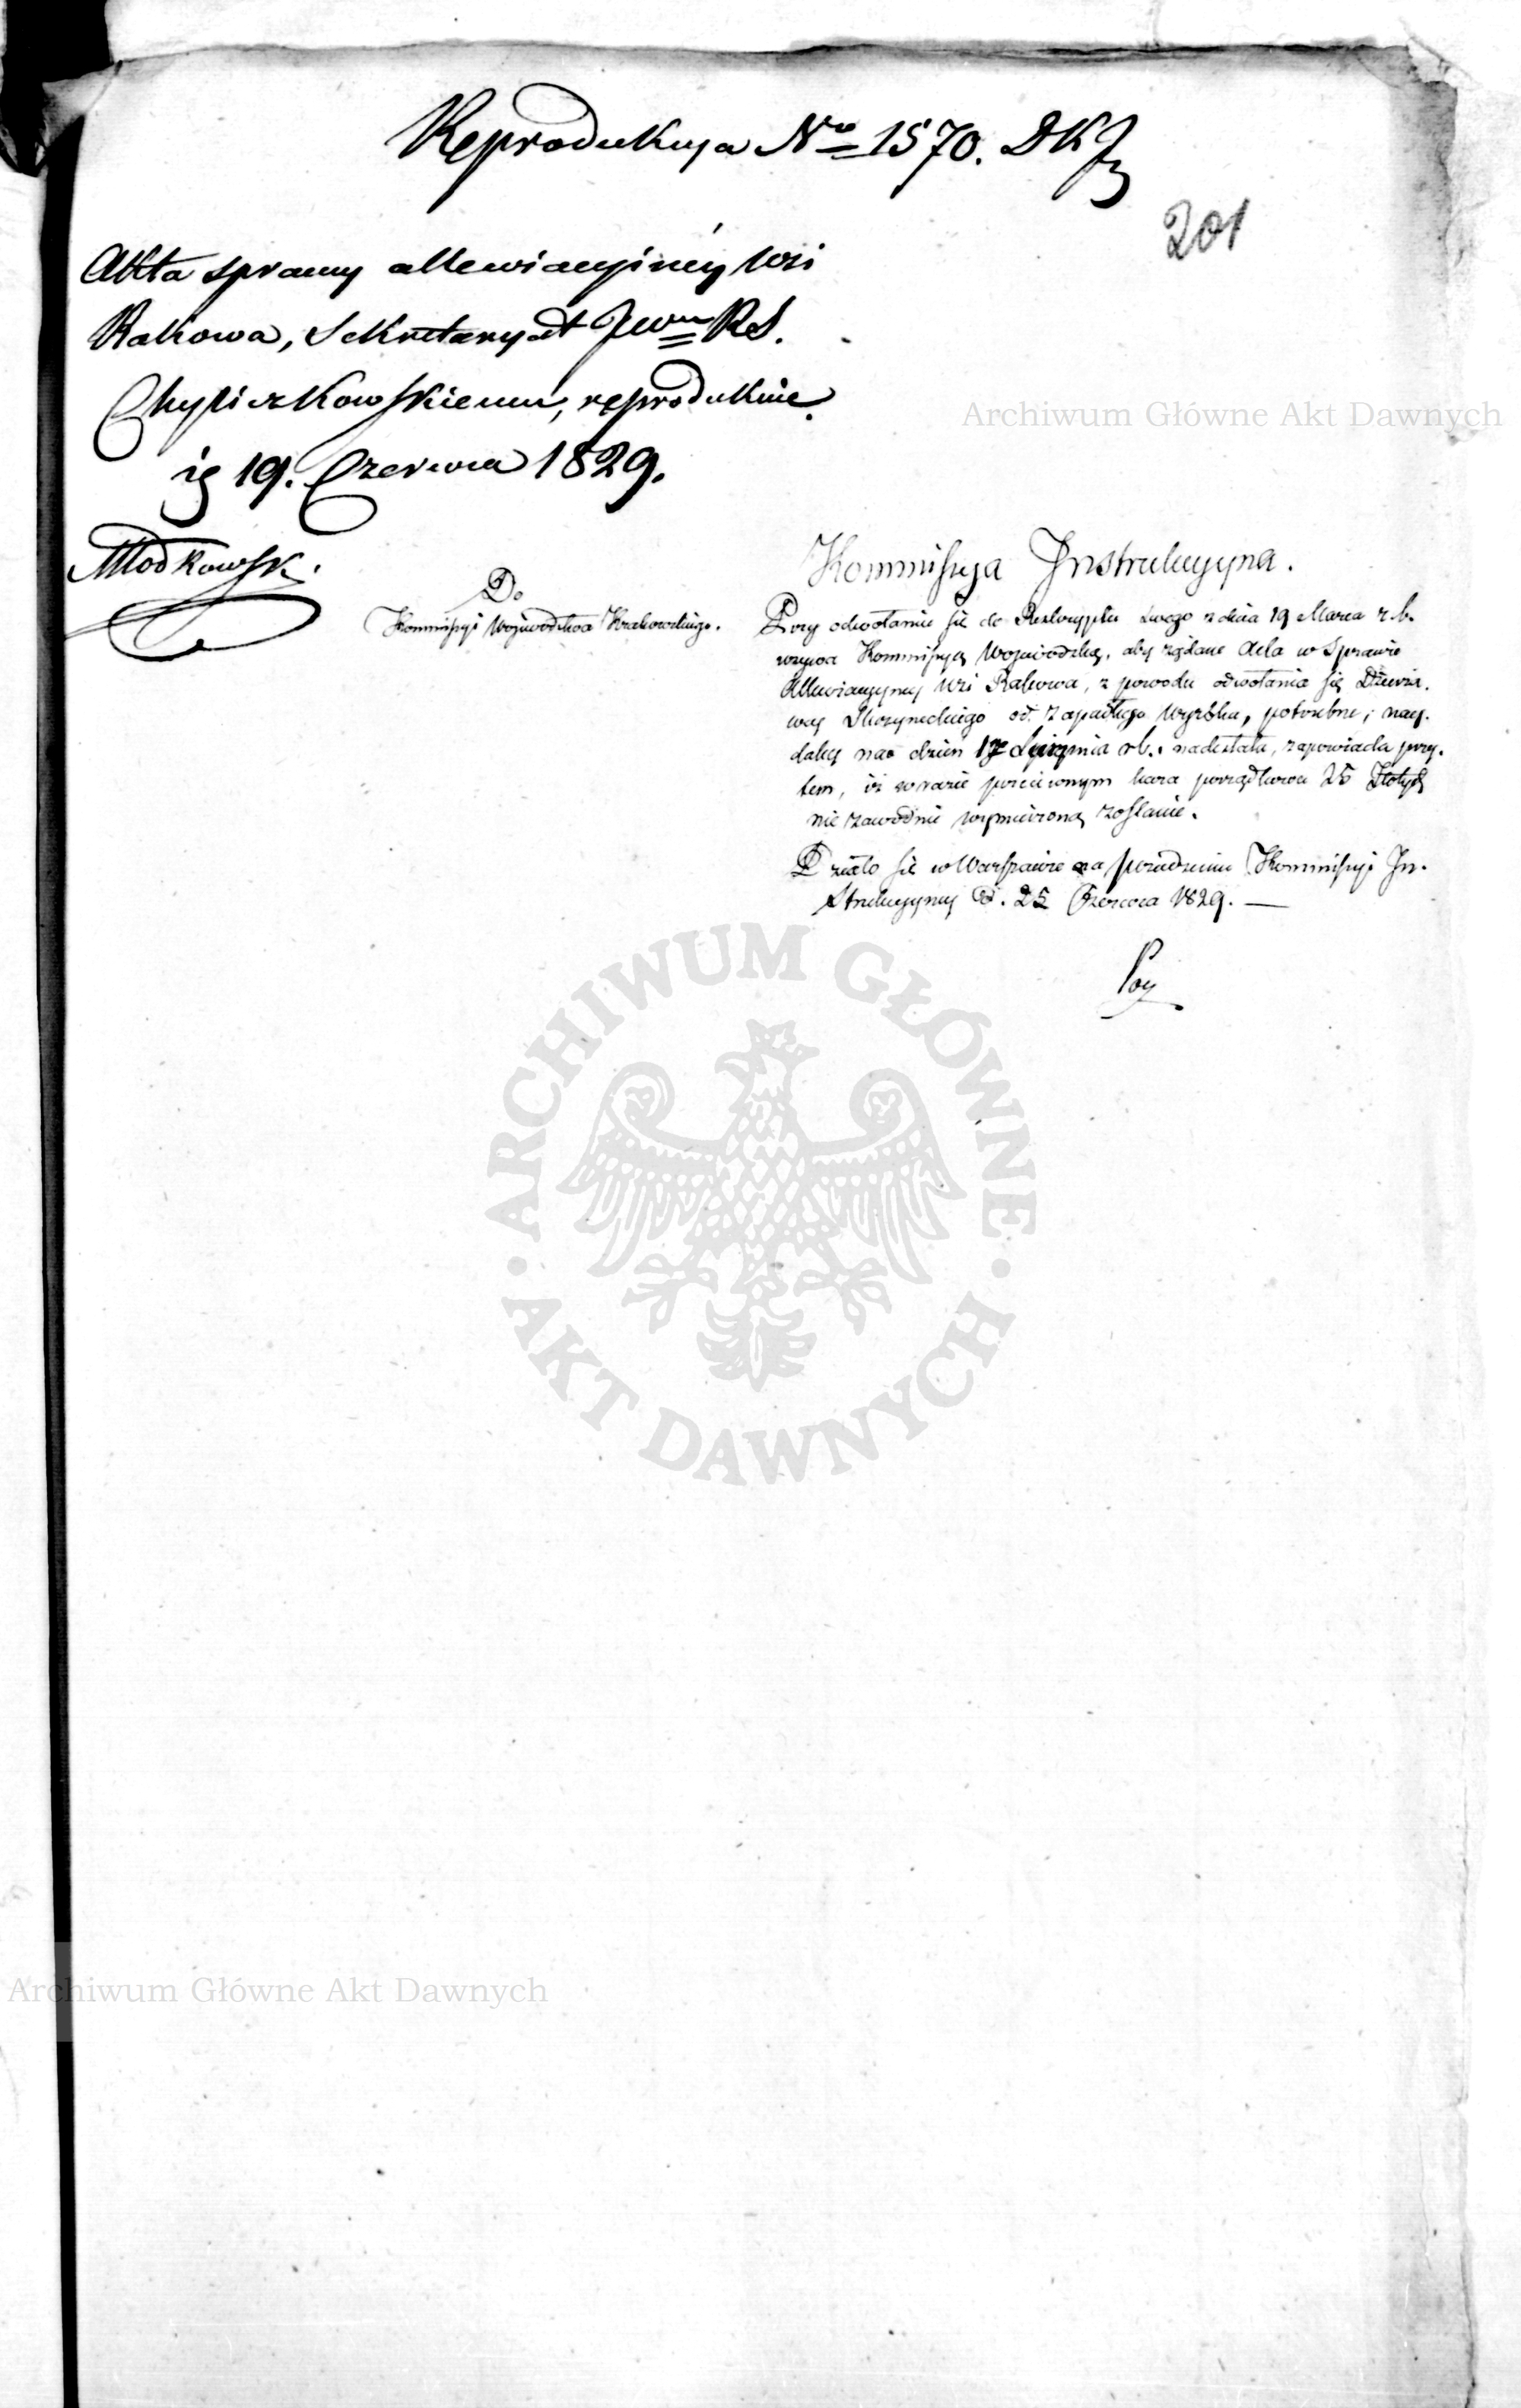 Reprodukcya Nro 1570. DKJ
201
Akta sprawy allewiacyiney wsi
Rakowa, Sekretaryat JWmu RS.
Chyliczkowskiemu, reprodukuie.
19. Czerwca 1829.
Archiwum Główne Akt Dawnych
Młodkowsk.
Do
Kommissyi Województwa Krakowskiego.
Kommissyia Instrukcyyna.
Przy odwołaniu się do Reskryptu swego z dnia 19 Marca r. b.
wzywa Kommissyą Wojewódzką, aby żądane Acta w Sprawie
Allewiacyyney Wsi Rakowa, z powodu odwołania się Dzierża-
wcy Skrzyneckiego od zapadłego Wyroku, potrzebne, nay-
daley na dzień 17 rb. nadesłała, zapowiada przy-
tem, iż w razie przeciwnym kara porządkowa 25 Złotych
nie zawodnie wymierzoną zostanie.
Działo się w Warszawie na posiedzeniu Kommissyi In-
strukcyyney d. 25 Czerwca 1829.
ARCHIWUM GŁÓWNE
AKT DAWNYCH
Archiwum Główne Akt Dawnych